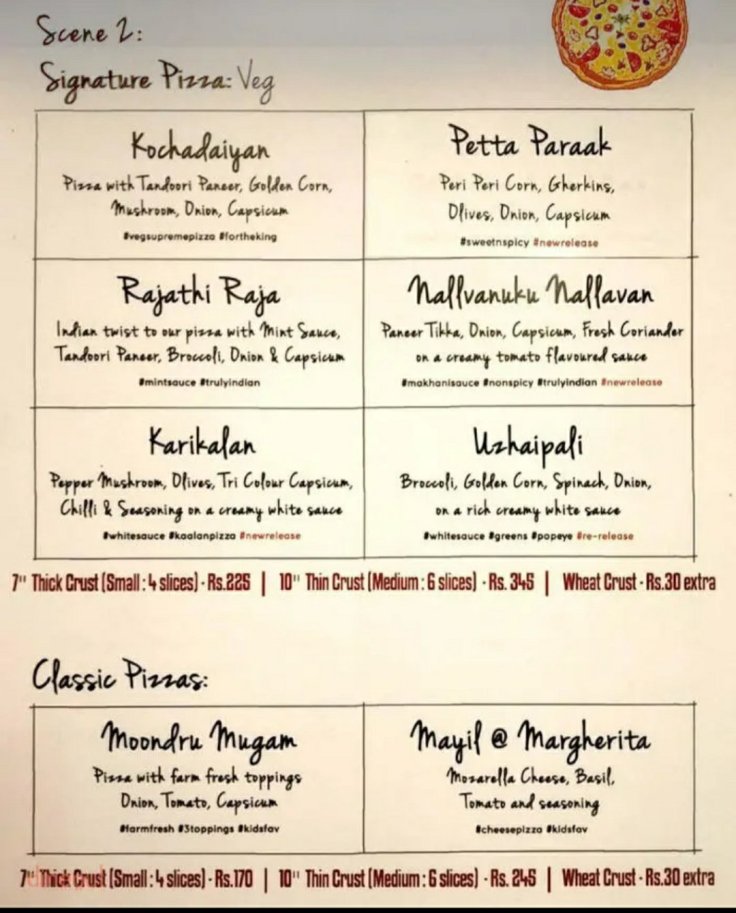 Scene 2:
Signature Pizza: Veg
Kochadaiyan
Pizza with Tandoori Paneer, Golden Corn,
Mushroom, Onion, Capsicum
#vegsupremepizza #fortheking
Petta Paraak
Peri Peri Corn, Gherkins,
Olives, Onion, Capsicum
#sweetnspicy #newrelease
Rajathi Raja
Indian twist to our pizza with Mint Sauce,
Tandoori Paneer, Broccoli, Onion & Capsicum
#mintsauce #trulyindian
Nallvanuku Nallavan
Paneer Tikka, Onion, Capsicum, Fresh Coriander
on a creamy tomato flavoured sauce
#makhanisauce #nonspicy #trulyindian #newrelease
Karikalan
Pepper Mushroom, Olives, Tri Colour Capsicum,
Chilli & Seasoning on a creamy white sauce
#whitesauce #kaalanpizza #newrelease
Uzhaipali
Broccoli, Golden Corn, Spinach, Onion,
on a rich creamy white sauce
#whitesauce #greens #popeye #re-release
7" Thick Crust (Small : 4 slices) - Rs.225 | 10" Thin Crust (Medium : 6 slices) - Rs. 345 | Wheat Crust - Rs.30 extra
Classic Pizzas:
Moondru Mugam
Pizza with farm fresh toppings
Onion, Tomato, Capsicum
#farmfresh #3toppings #kidsfav
Mayil @ Margherita
Mozarella Cheese, Basil,
Tomato and seasoning
#cheesepizza #kidsfav
7" Thick Crust (Small : 4 slices) - Rs.170 | 10" Thin Crust (Medium : 6 slices) - Rs. 245 | Wheat Crust - Rs.30 extra